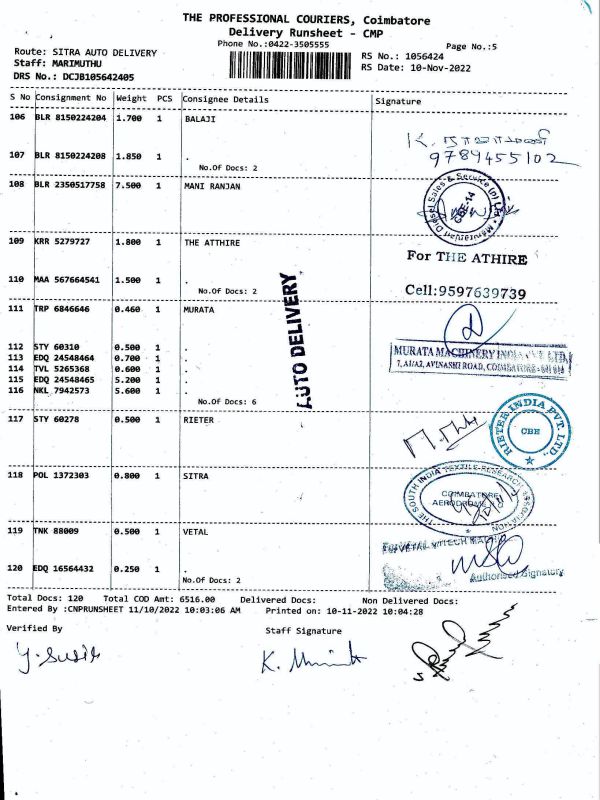 THE PROFESSIONAL COURIERS, Coimbatore
Delivery Runsheet - CMP
Phone No.:0422-3505555
Page No.:5
Route: SITRA AUTO DELIVERY
RS No.: 1056424
Staff: MARIMUTHU
RS Date: 10-Nov-2022
DRS No.: DCJB105642405
S No Consignment No Weight PCS Consignee Details Signature
106 BLR 8150224204 1.700 1 BALAJI
K.
9789455102
107 BLR 8150224208 1.850 1 .
No.Of Docs: 2
108 BLR 2350517758 7.500 1 MANI RANJAN
CBE-14
109 KRR 5279727 1.800 1 THE ATTHIRE
For THE ATHIRE
110 MAA 567664541 1.500 1 .
No.Of Docs: 2
Cell:9597639739
AUTO DELIVERY
111 TRP 6846646 0.460 1 MURATA
112 STY 60310 0.500 1 .
113 EDQ 24548464 0.700 1 .
114 TVL 5265368 0.600 1 .
115 EDQ 24548465 5.200 1 .
116 NKL 7942573 5.600 1 .
No.Of Docs: 6
MURATA MACHINERY INDIA PVT LTD.
AVINASHI ROAD, COIMBATORE
117 STY 60278 0.500 1 RIETER
RIETER INDIA PVT. LTD.,
CBE
118 POL 1372303 0.800 1 SITRA
THE SOUTH INDIA TEXTILE RESEARCH ASSOCIATION
COIMBATORE
AERODROME
119 TNK 88009 0.500 1 VETAL
120 EDQ 16564432 0.250 1 .
No.Of Docs: 2
Authorised Signatory
Total Docs: 120 Total COD Amt: 6516.00 Delivered Docs: Non Delivered Docs:
Entered By :CNPRUNSHEET 11/10/2022 10:03:06 AM Printed on: 10-11-2022 10:04:28
Verified By
Staff Signature